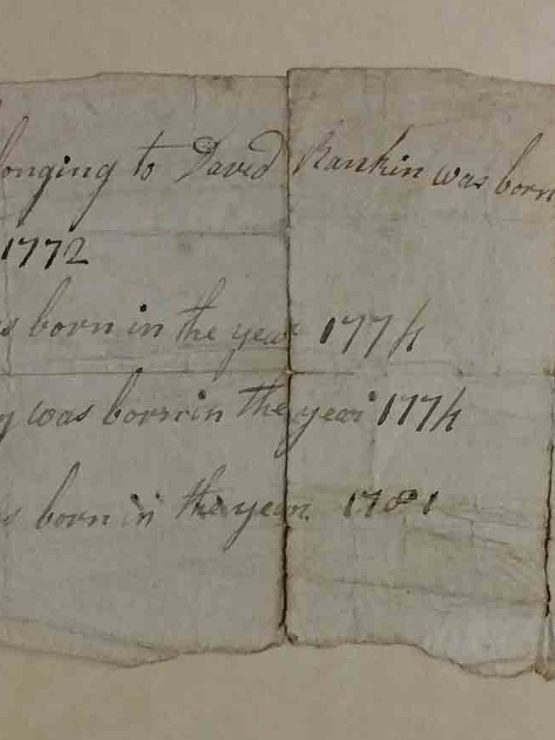 longing to David Rankin was born
1772
s born in the year 1774
g was born in the year 1774
s born in the year 1781